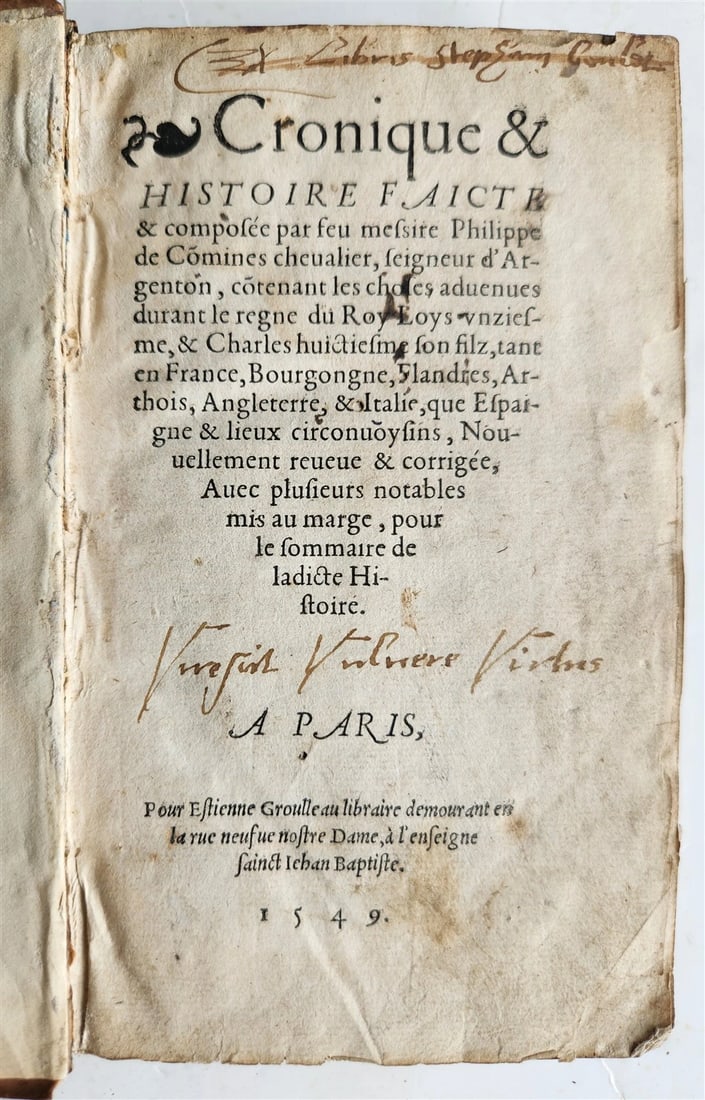 Ex Libris Stephani
❧ Cronique &
HISTOIRE FAICTE
& composée par feu meſsire Philippe
de Cõmines cheualier, ſeigneur d'Ar-
genton, cõtenant les choſes aduenues
durant le regne du Roy Loys vnzieſ-
me, & Charles huictieſme ſon filz, tant
en France, Bourgongne, Flandres, Ar-
thois, Angleterre, & Italie, que Eſpai-
gne & lieux circonuoyſins, Nou-
uellement reueue & corrigée,
Auec pluſieurs notables
mis au marge, pour
le ſommaire de
ladicte Hi-
ſtoire.
Vireſcit Vulnere Virtus
A PARIS,
Pour Eſtienne Groulleau libraire demourant en
la rue neufue noſtre Dame, à l'enſeigne
ſainct Iehan Baptiſte.
1549.